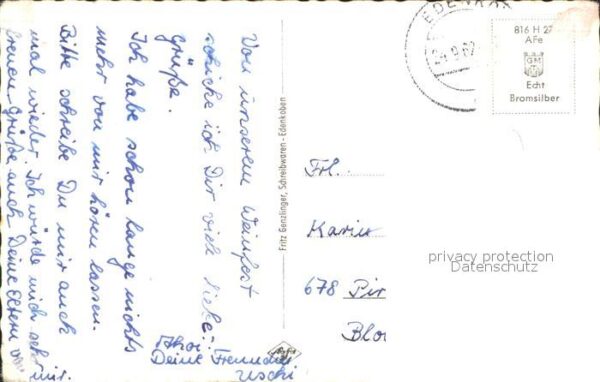 Von unserem Weinfest
schicke ich Dir viele liebe
Grüße.
Ich habe schon lange nichts
mehr von mir hören lassen.
Bitte schreibe Du mir auch
mal wieder. Ich würde mich sehr
freuen. Grüße auch Deine Eltern von
mir.
Ahoi
Deine Freundin
Uschi
Fritz Ganzlinger, Schreibwaren - Edenkoben
EDENK
24.9.62
816 H 27
AFe
GM
Echt
Bromsilber
Frl.
Karin
678 Pir
Blo
privacy protection
Datenschutz